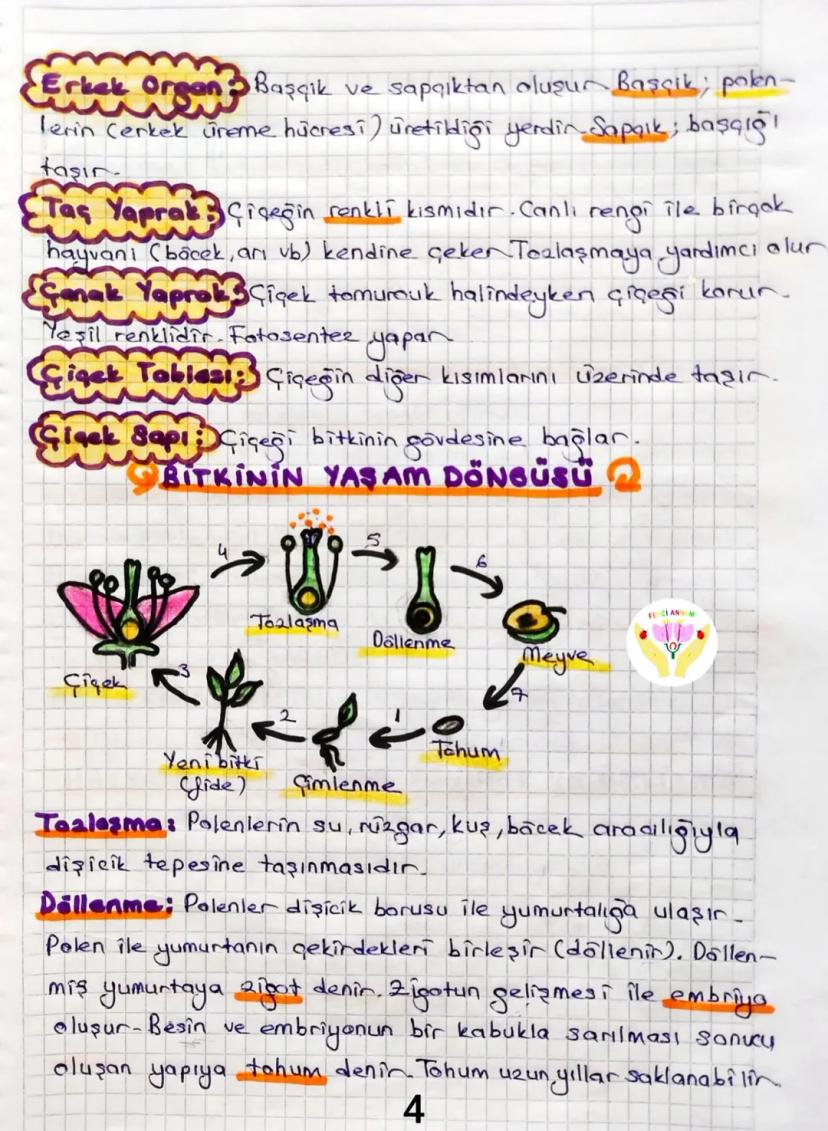 Erkek Organ: Başçık ve sapçıktan oluşur. Başçık; polen-
lerin (erkek üreme hücresi) üretildiği yerdir. Sapçık; başçığı
taşır.
Taç Yaprak: Çiçeğin renkli kısmıdır. Canlı rengi ile birçok
hayvanı (böcek, arı vb) kendine çeker. Tozlaşmaya yardımcı olur
Çanak Yaprak: Çiçek tomurcuk halindeyken çiçeği korur.
Yeşil renklidir. Fotosentez yapar.
Çiçek Tablası: Çiçeğin diğer kısımlarını üzerinde taşır.
Çiçek Sapı: Çiçeği bitkinin gövdesine bağlar.
BİTKİNİN YAŞAM DÖNGÜSÜ
4
5
6
Tozlaşma
Döllenme
FENCİ ANNEM
Meyve
Çiçek
3
7
2
1
Tohum
Yeni bitki
(fide)
Çimlenme
Tozlaşma: Polenlerin su, rüzgar, kuş, böcek aracılığıyla
dişicik tepesine taşınmasıdır.
Döllenme: Polenler dişicik borusu ile yumurtalığa ulaşır.
Polen ile yumurtanın çekirdekleri birleşir (döllenir). Döllen-
miş yumurtaya zigot denir. Zigotun gelişmesi ile embriyo
oluşur. Besin ve embriyonun bir kabukla sarılması sonucu
oluşan yapıya tohum denir. Tohum uzun yıllar saklanabilir.
4